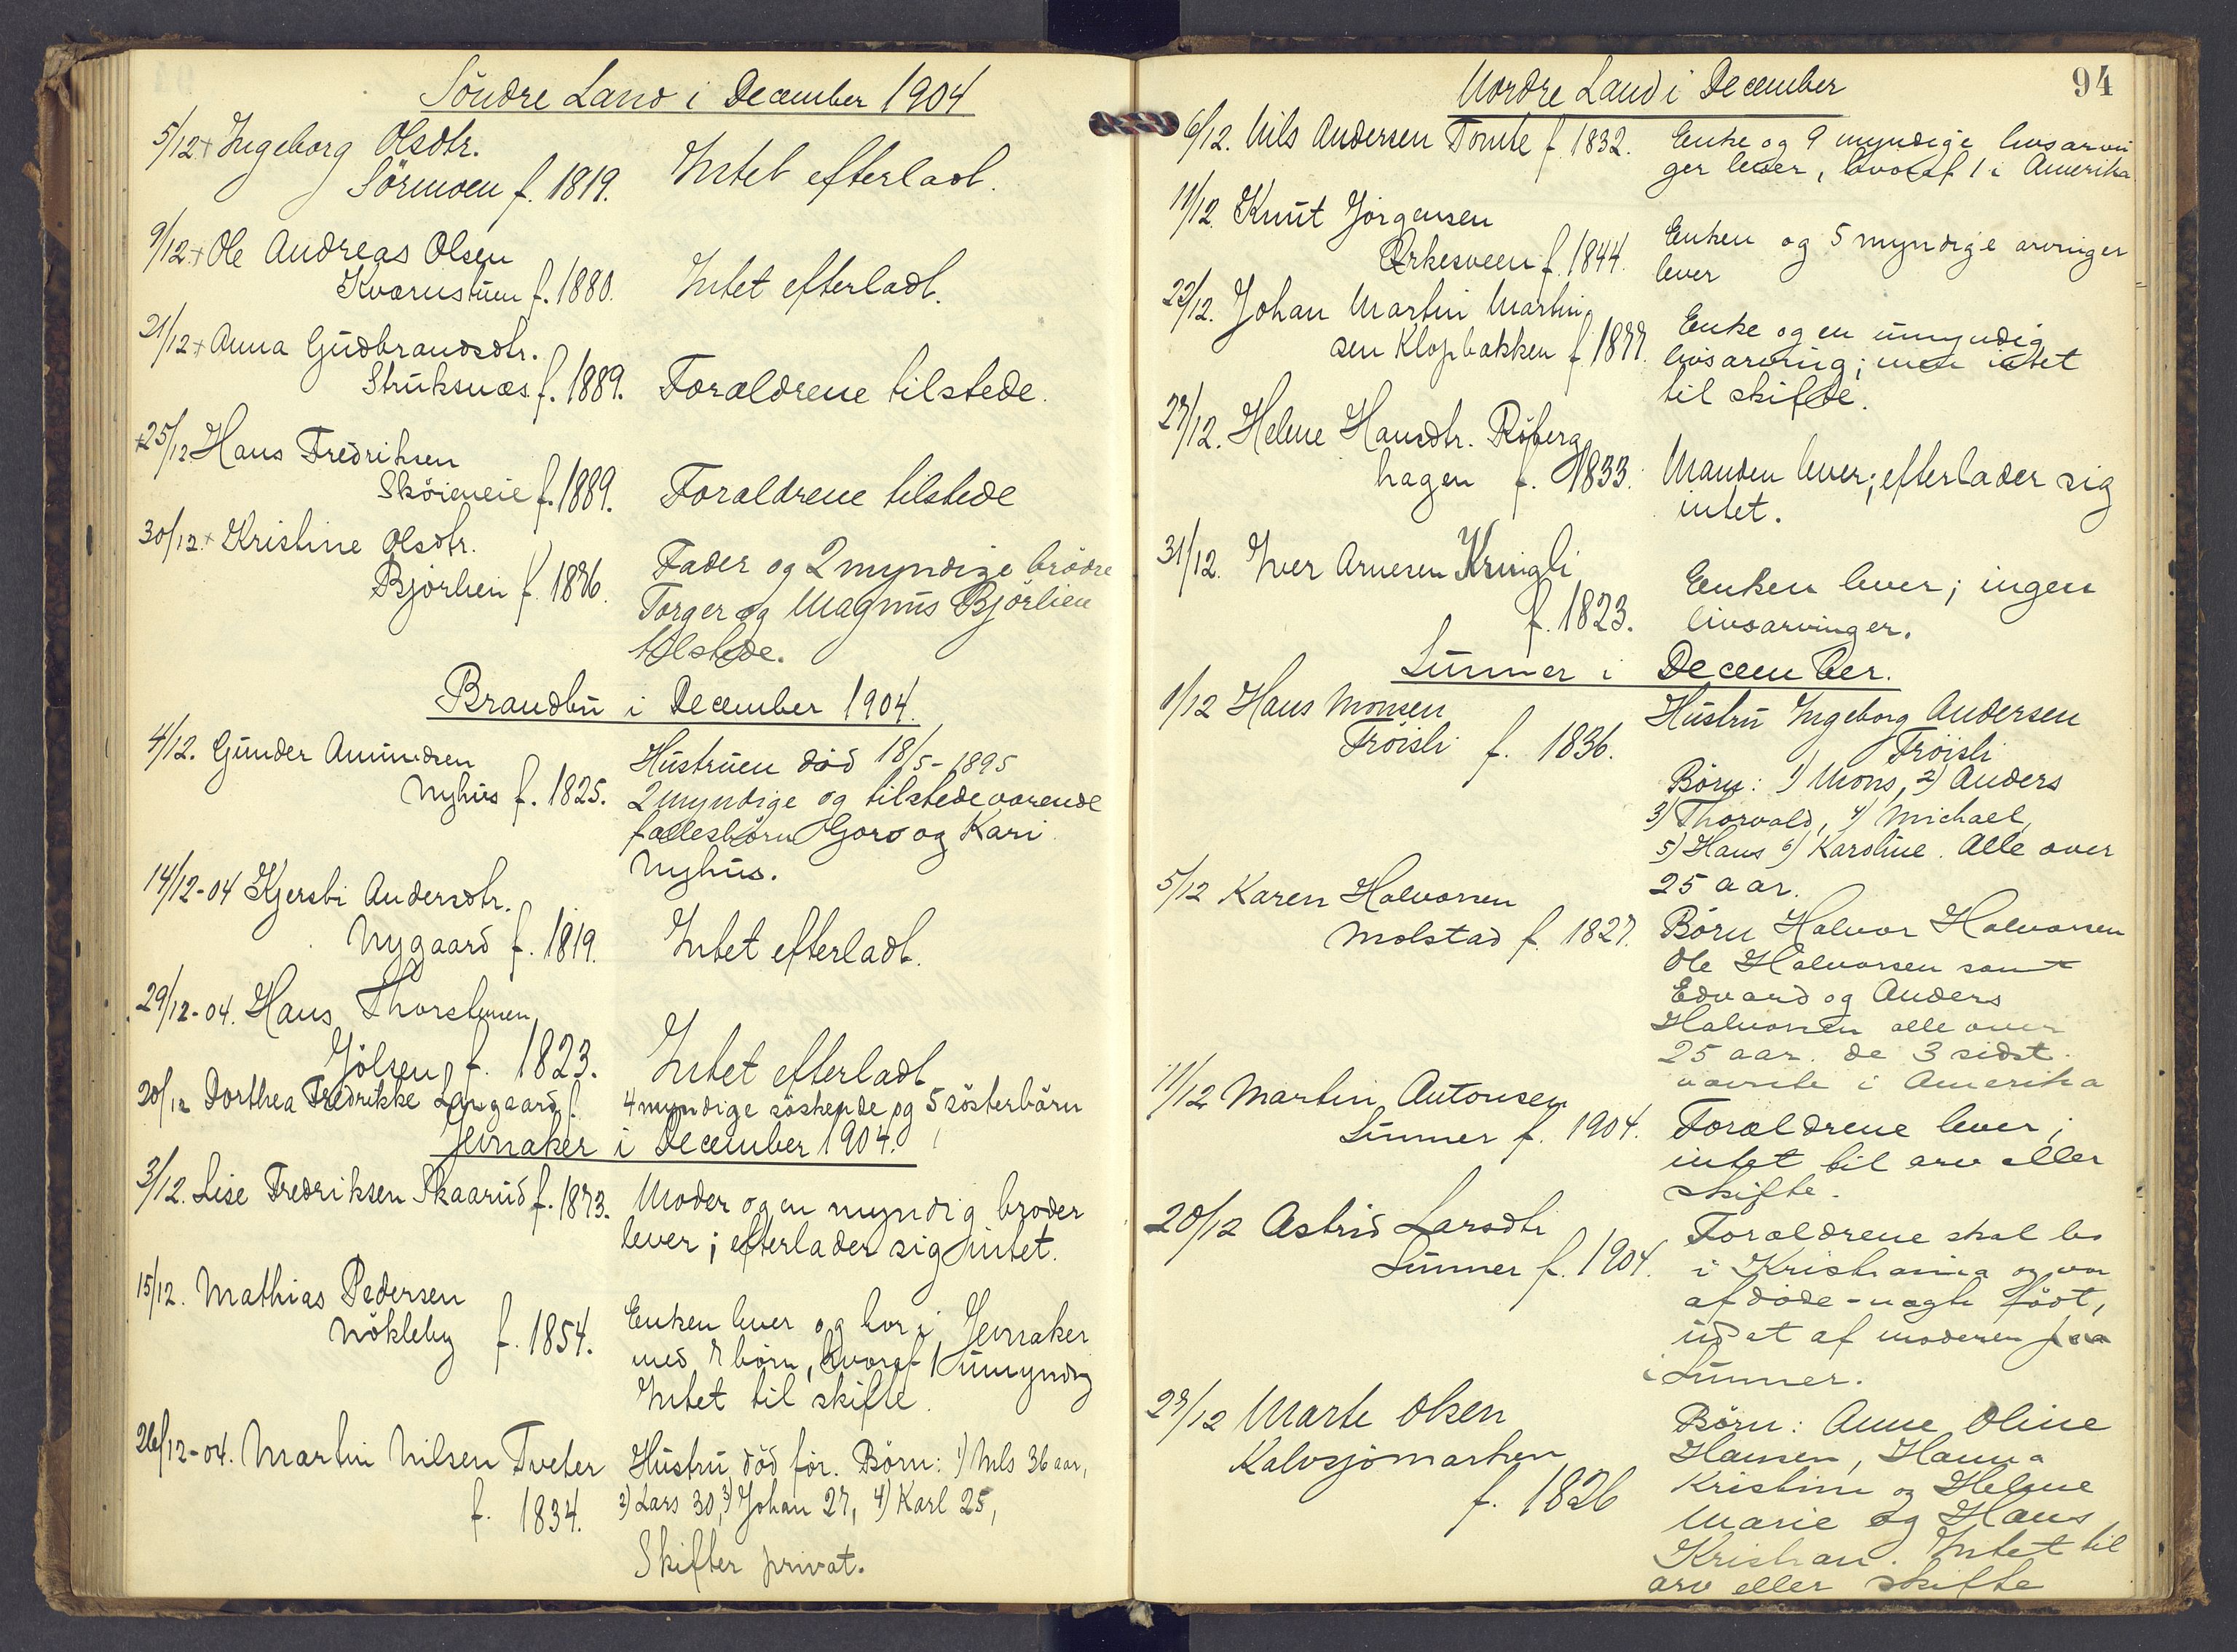 Söndre Land i December 1904
5/12 + Ingeborg Olsdtr.
Sörmoen f. 1819.
Intet efterladt.
9/12 + Ole Andreas Olsen
Kværnstuen f. 1880.
Intet efterladt.
21/12 + Anna Gudbrandsdtr.
Struksnæs f. 1889.
Forældrene tilstede.
+ 25/12 Hans Fredriksen
Sköieneie f. 1889.
Forældrene tilstede
30/12 + Kristine Olsdtr.
Björlien f. 1876.
Fader og 2 myndige brödre
Torger og Magnus Björlien
tilstede.
Brandbu i December 1904.
4/12. Gunder Amundsen
Nyhus f. 1825.
Hustruen död 18/5-1895
2 myndige og tilstedeværende
fællesbörn Goro og Kari
Nyhus.
14/12-04 Kjersti Andersdtr.
Nygaard f. 1819.
Intet efterladt.
29/12-04. Hans Thorstensen
Jölsen f. 1823.
Intet efterladt
20/12 Dorthea Fredrikke Langaard f.
4 myndige söskende og 5 sösterbörn
Jevnaker i December 1904.
3/12. Lise Fredriksen Skaarud f. 1873.
Moder og en myndig broder
lever; efterlader sig intet.
15/12. Mathias Pedersen
Nökleby f. 1854.
Enken lever og bor i Jevnaker
med 7 börn, hvoraf 1 umyndig
Intet til skifte.
26/12-04. Martin Nilsen Tveter
f. 1834.
Hustru död för. Börn: 1) Nils 36 aar,
2) Lars 30, 3) Johan 27, 4) Karl 25,
Skifter privat.
94
Nordre Land i December
6/12. Nils Andersen Tomte f. 1832.
Enke og 9 myndige livsarvin
ger lever, hvoraf 1 i Amerika
11/12. Knut Jörgensen
f. 1844.
Enken og 5 myndige arvinger
lever
22/12. Johan Martin Martin
sen Klopbakken f. 1877.
Enke og en umyndig
livsarving; men intet
til skifte.
27/12. Helene Hansdtr. Röberg
hagen f. 1833.
Manden lever; efterlader sig
intet.
31/12. Iver Arnesen Kringli
f. 1823.
Enken lever; ingen
livsarvinger.
Lunner i December.
1/12 Hans Monsen
Tröisli f. 1836.
Hustru Ingeborg Andersen
Tröisli
Börn: 1) Mons, 2) Anders
3) Thorvald, 4) Michael,
5) Hans 6) Karoline. Alle over
25 aar.
5/12 Karen Halvorsen
Molstad f. 1827.
Börn Halvor Halvorsen
Ole Halvorsen samt
Edvard og Anders
Halvorsen alle over
25 aar. de 3 sidst
nævnte i Amerika
11/12 Martin Antonsen
Lunner f. 1904.
Forældrene lever;
intet til arv eller
skifte.
20/12 Astrid Larsdtr
Lunner f. 1904.
Forældrene skal bo
i Kristiania og var
afdöde – födt,
udsat af moderen paa
i Lunner.
27/12 Marte Olsen
Kalvsjömarken
f. 1826
Börn: Anne Oline
Hansen, Hanna
Kristine og Helene
Marie og Hans
Kristian. Intet til
arv eller skifte